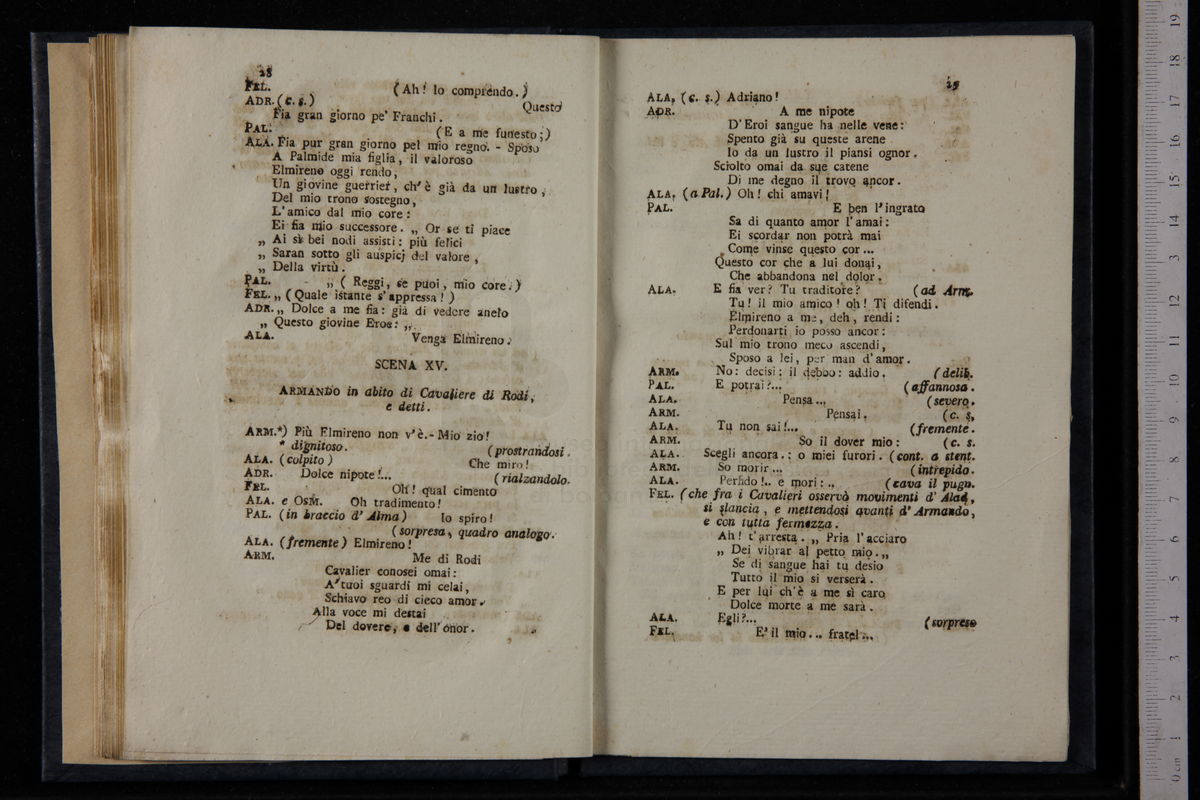 28
FEL. (Ah! lo comprèndo.)
ADR. (c. s.) Questo
Fia gran giorno pe' Franchi.
PAL. (E a me funesto;)
ALA. Fia pur gran giorno pel mio regno. - Sposo
A Palmide mia figlia, il valoroso
Elmireno oggi rendo,
Un giovine guerrier, ch' è già da un lustro,
Del mio trono sostegno,
L'amico dal mio core:
Ei fia mio successore. „ Or se ti piace
„ Ai sì bei nodi assisti: più felici
„ Saran sotto gli auspicj del valore,
„ Della virtù.
PAL. „ (Reggi, se puoi, mio core.)
FEL. „ (Quale istante s'appressa!)
ADR. „ Dolce a me fia: già di vedere anelo
„ Questo giovine Eroe: „.
ALA. Venga Elmireno.
SCENA XV.
ARMANDO in abito di Cavaliere di Rodi,
e detti.
ARM.*) Più Elmireno non v'è. - Mio zio!
* dignitoso. (prostrandosi.
ALA. (colpito) Che miro!
ADR. Dolce nipote!... (rialzandolo.
FEL. Oh! qual cimento
ALA. e OSM. Oh tradimento!
PAL. (in braccio d' Alma) Io spiro!
(sorpresa, quadro analogo.
ALA. (fremente) Elmireno!
ARM. Me di Rodi
Cavalier conosci omai:
A' tuoi sguardi mi celai,
Schiavo reo di cieco amor.
Alla voce mi destai
Del dovere, e dell' onor.
29
ALA. (c. s.) Adriano!
ADR. A me nipote
D' Eroi sangue ha nelle vene:
Spento già su queste arene
Io da un lustro il piansi ognor.
Sciolto omai da sue catene
Di me degno il trovo ancor.
ALA. (a Pal.) Oh! chi amavi!
PAL. E ben l'ingrato
Sa di quanto amor l'amai:
Ei scordar non potrà mai
Come vinse questo cor...
Questo cor che a lui donai,
Che abbandona nel dolor.
ALA. E fia ver? Tu traditore? (ad Arm.
Tu! il mio amico! oh! Ti difendi.
Elmireno a me, deh, rendi:
Perdonarti io posso ancor:
Sul mio trono meco ascendi,
Sposo a lei, per man d'amor.
ARM. No: decisi; il debbo: addio. (delib.
PAL. E potrai?... (affannosa.
ALA. Pensa... (severo.
ARM. Pensai. (c. s.
ALA. Tu non sai!... (fremente.
ARM. So il dover mio: (c. s.
ALA. Scegli ancora.: o miei furori. (cont. a stent.
ARM. So morir... (intrepido.
ALA. Perfido!.. e mori: .. (cava il pugn.
FEL. (che fra i Cavalieri osservò movimenti d' Alad,
si slancia, e mettendosi avanti d' Armando,
e con tutta fermezza.
Ah! t'arresta. „ Pria l'acciaro
„ Dei vibrar al petto mio. „
Se di sangue hai tu desio
Tutto il mio si verserà.
E per lui ch'è a me sì caro
Dolce morte a me sarà.
ALA. Egli?... (sorpreso
FEL. E' il mio... fratel...